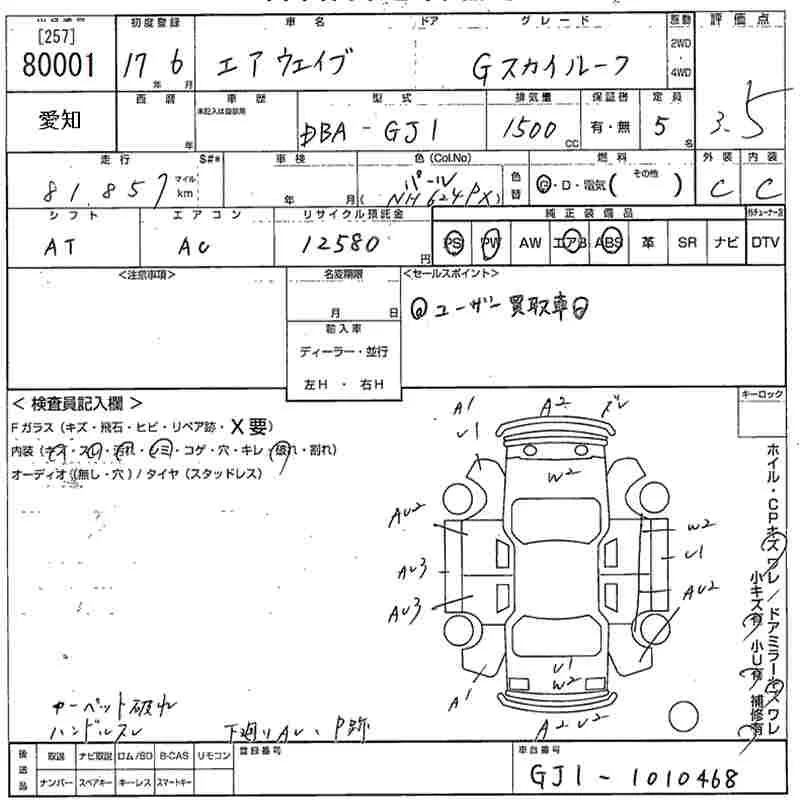 [257]
80001
初度登録
17年 6月
車名
エアウェイブ
ドア
グレード
Gスカイルーフ
駆動
2WD
・
4WD
評価点
3.5
愛知
西暦
年
車歴
未記入は自家用
型式
DBA-GJ1
排気量
1500 CC
保証書
有・無
定員
5名
走行
S#*
81,857
マイル
km
車検
年 月
色 (Col.No)
パール
(NH624PX)
色替
燃料
G・D・電気( その他 )
外装
C
内装
C
シフト
AT
エアコン
AC
リサイクル預託金
12580円
純正装備品
PS PW AW エアB ABS 革 SR ナビ
DTV
<注意事項>
名変期限
月 日
輸入車
ディーラー・並行
左H ・ 右H
<セールスポイント>
◎ユーザー買取車◎
< 検査員記入欄 >
Fガラス (キズ・飛石・ヒビ・リペア跡・X要)
内装 (キズ・スレ・汚れ・シミ・コゲ・穴・キレ・破れ・割れ)
オーディオ (無し・穴) / タイヤ (スタッドレス)
キーロック
A1
U1
A2
ズレ
W2
AU2
AU3
AU3
A1
W2
U1
AU2
U1
W2
A2U2
ホイル・CPキズワレ / ドアミラーキズワレ
小キズ有 小U有 補修有
カーペット破れ
ハンドルスレ
下廻りAU、P跡
後送品
取説 ナビ取説 ロム/SD B-CAS リモコン
ナンバー スペアキー キーレス スマートキー
登録番号
車台番号
GJ1-1010468